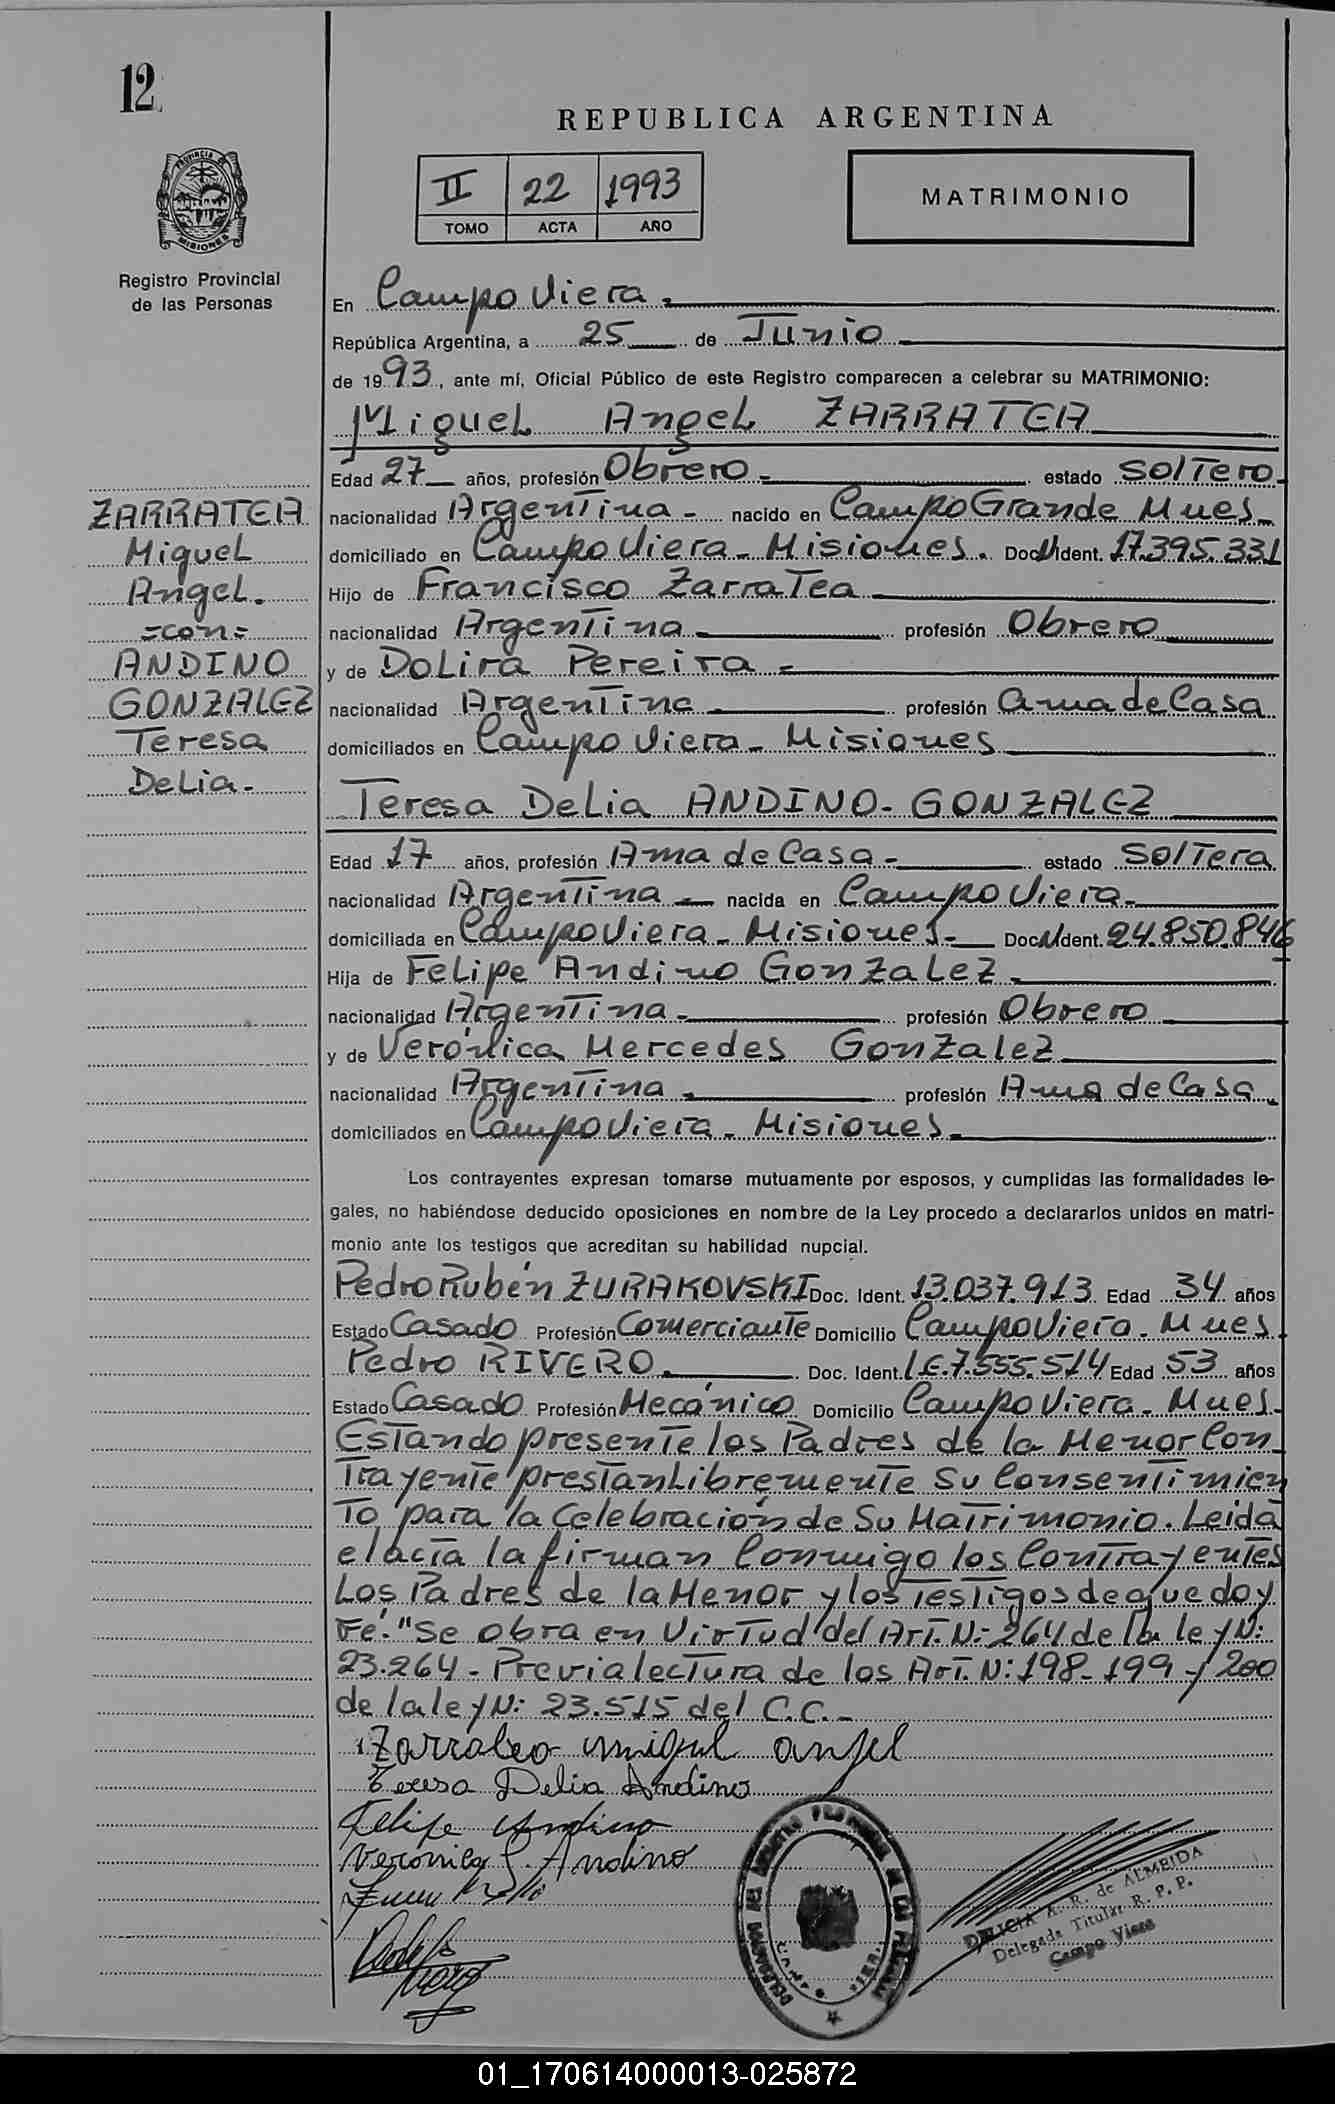 12
REPUBLICA ARGENTINA
II 22 1993
TOMO ACTA AÑO
MATRIMONIO
PROVINCIA DE MISIONES
Registro Provincial
de las Personas
En Campo Viera.
República Argentina, a 25 de Junio
de 1993, ante mí, Oficial Público de este Registro comparecen a celebrar su MATRIMONIO:
Miguel Angel ZARRATEA
Edad 27 años, profesión Obrero estado Soltero
nacionalidad Argentina nacido en Campo Grande Mnes
domiciliado en Campo Viera - Misiones. Doc N ident. 17.395.331
Hijo de Francisco Zarratea
nacionalidad Argentina profesión Obrero
y de Dolira Pereira
nacionalidad Argentina profesión ama de Casa
domiciliados en Campo Viera - Misiones
Teresa Delia ANDINO - GONZALEZ
Edad 17 años, profesión Ama de Casa estado Soltera
nacionalidad Argentina nacida en Campo Viera
domiciliada en Campo Viera - Misiones Doc N ident. 24.850.846
Hija de Felipe Andino Gonzalez
nacionalidad Argentina profesión Obrero
y de Verónica Mercedes Gonzalez
nacionalidad Argentina profesión Ama de Casa
domiciliados en Campo Viera - Misiones
ZARRATEA
Miguel
Angel.
=con=
ANDINO
GONZALEZ
Teresa
Delia.
Los contrayentes expresan tomarse mutuamente por esposos, y cumplidas las formalidades le-
gales, no habiéndose deducido oposiciones en nombre de la Ley procedo a declararlos unidos en matri-
monio ante los testigos que acreditan su habilidad nupcial.
Pedro Rubén ZURAKOVSKI Doc. Ident. 13.037.913 Edad 34 años
Estado Casado Profesión Comerciante Domicilio Campo Viera - Mnes
Pedro RIVERO Doc. Ident. L.E.7.555.514 Edad 53 años
Estado Casado Profesión Mecánico Domicilio Campo Viera - Mnes.
Estando presente los Padres de la Menor Con
Trayente prestan Libremente Su Consentimien
To para la Celebración de Su Matrimonio. Leida
el acta la firman Conmigo los Contrayentes
Los Padres de la Menor y los Testigos de que doy
Fé. "Se obra en Virtud del Art. N: 264 de la ley N:
23.264 - Previa lectura de los Art. N: 198 - 199 y 200
de la ley N: 23.515 del C.C.
Zarratea migul angel
Teresa Delia Andino
Felipe Andino
Veronica G. Andino
DELICIA A. R. de ALMEIDA
Delegada Titular R. P. P.
Campo Viera
01_170614000013-025872